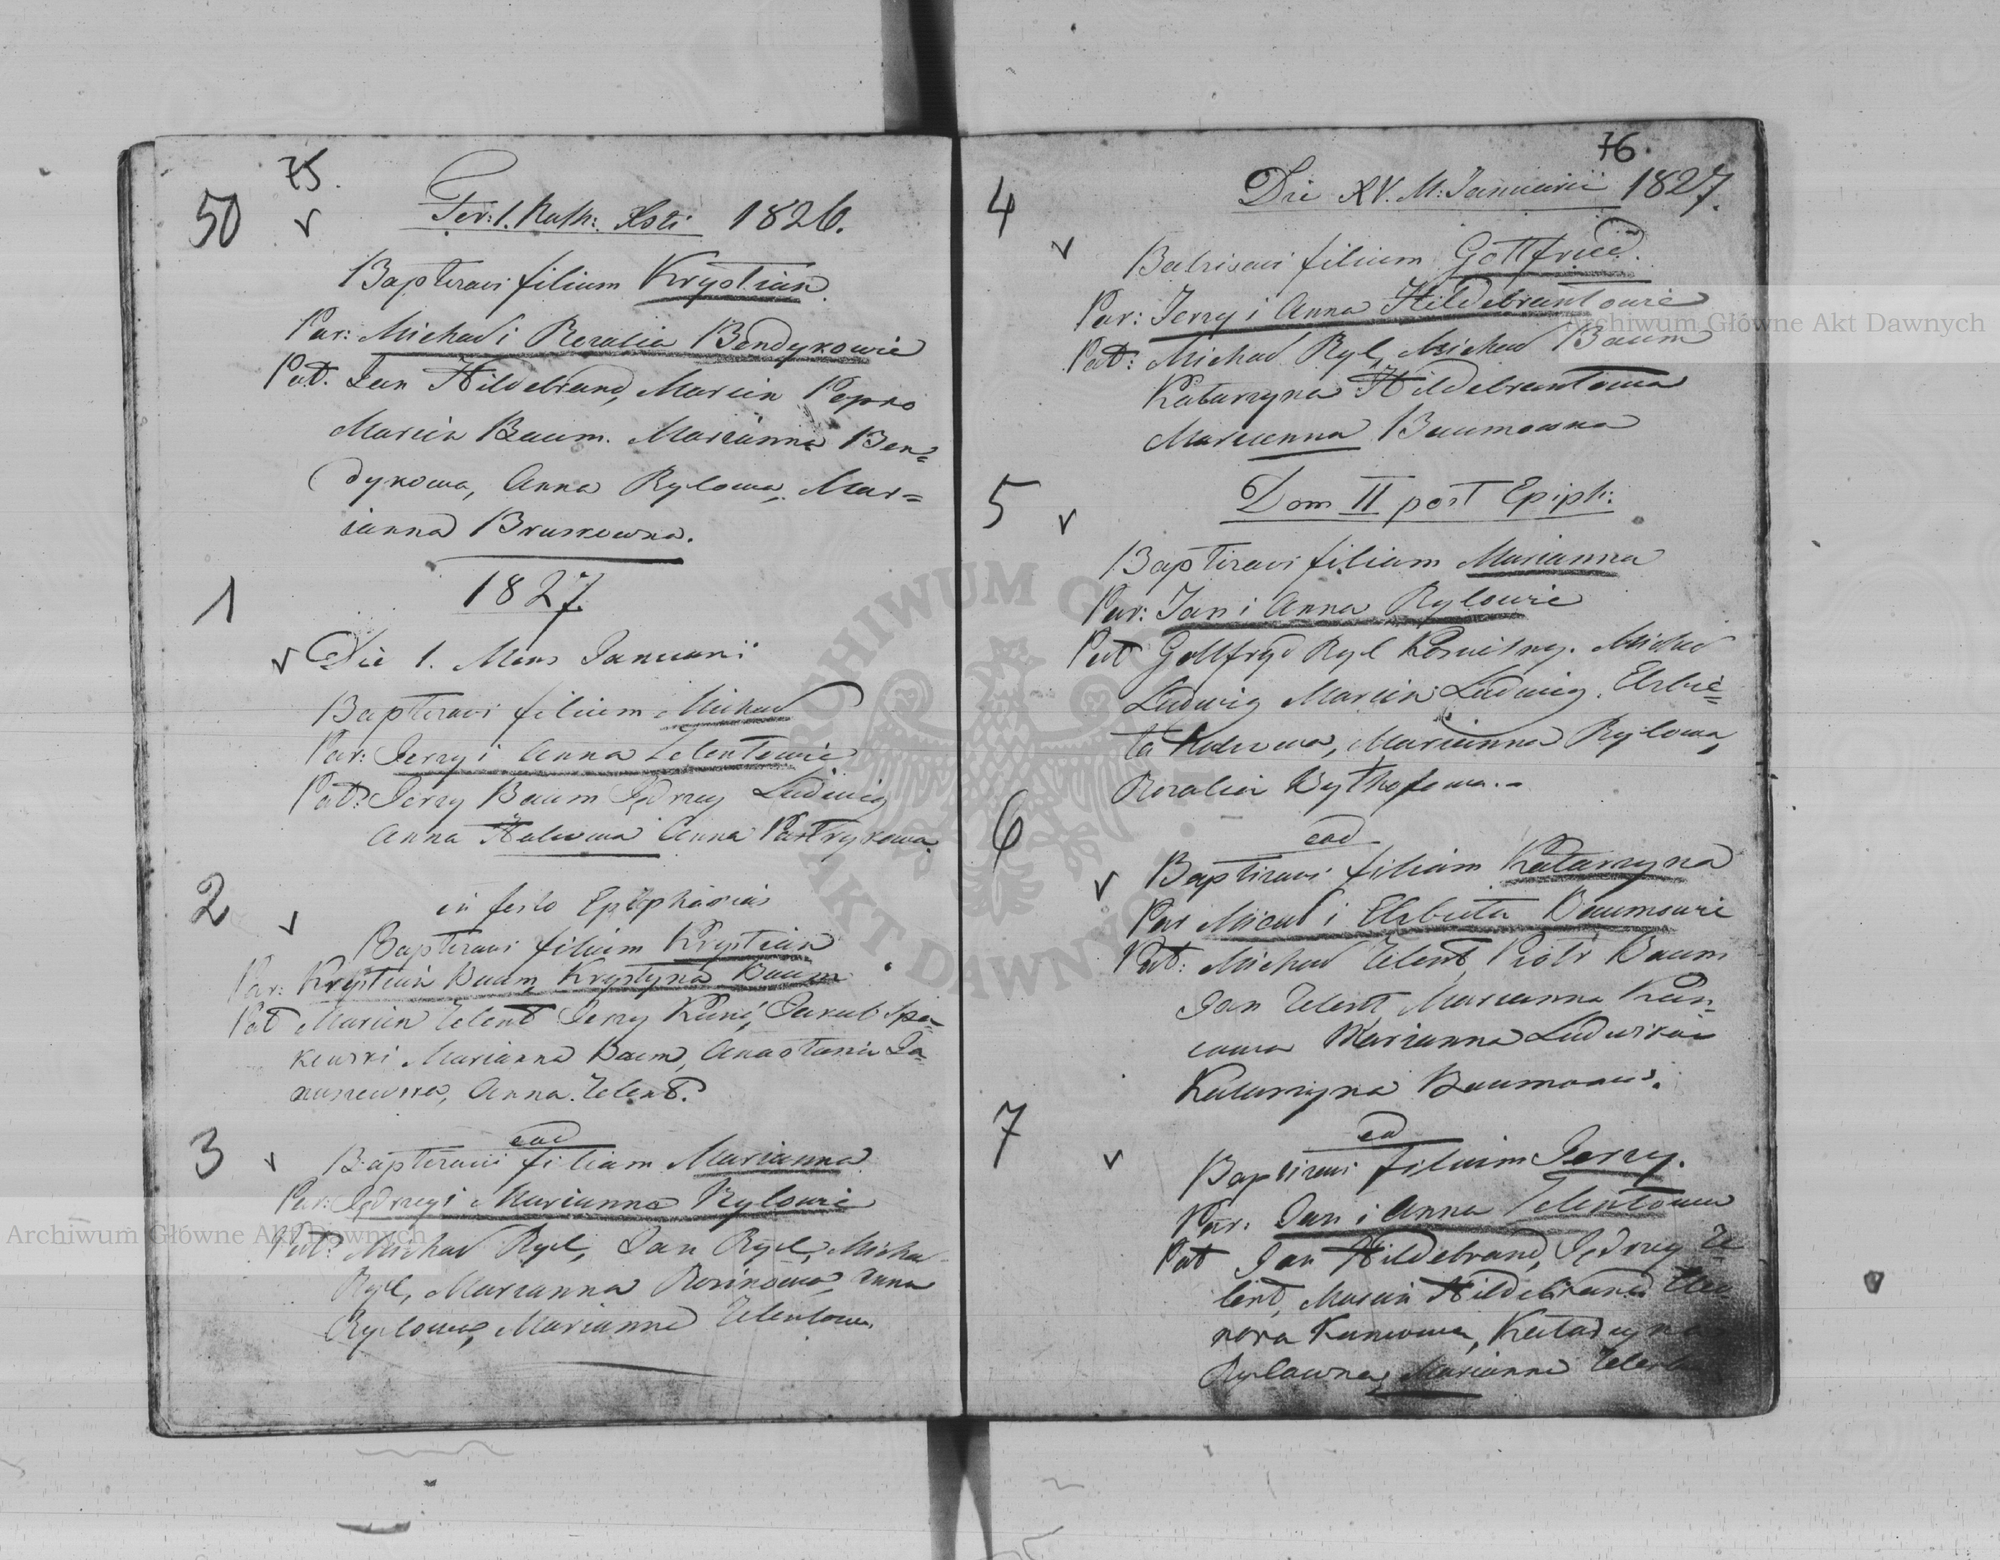 75.
50
Fer: 1. Nath: Xsti 1826.
Baptizavi filium Krystian
Par: Michał i Rozalia Bendykowie
Pat. Jan Hildebrand, Marcin Popko
Marcin Baum. Marianna Ben=
dykowa, Anna Rylowa, Mar=
ianna Bruskowna.
1827
1
Die 1. Mens Januarii
Baptizavi filium Michał
Par: Jerzy i Anna Zelentowie
Pat: Jerzy Baum Jędrzey Ludwig
Anna Anna Patrykowa.
2
in festo Epiphanias
Baptizavi filium Krystian
Par: Krystian Baum, Krystyna Baum
Pat Marcin Zelent Jerzy Kunc, Jakub Spa=
kowski Marianna Baum, Anastazia Ja=
nuszewska, Anna Zelent.
3
ead
Baptizavi filiam Marianna
Par: Jędrzey i Marianna Rylowie
Pat: Michał Ryl, Jan Ryl, Micha
Ryl, Marianna Anna
Rylowa, Marianna Zelentowa
76.
4
Die XV. M: Januarii 1827.
filium Gottfried.
Par: Jerzy i Anna Hildebrantowie
Pat: Michał Ryl, Michał Baum
Katarzyna Hildebrantowa
Marianna Baumowna
5
Dom II post Epiph:
Baptizavi filiam Marianna
Par: Jan i Anna Rylowie
Pat Gottfryd Ryl Michał
Ludwig Marcin Ludwig, Elzbie=
ta Marianna Rylowa,
Rozalia
6
ead
Baptizavi filiam Katarzyna
Par Michał i Elzbieta Baumowie
Pat: Michał Zelent, Piotr Baum
Jan Zelent, Marianna Kun=
cowa Marianna Ludwikowa
Katarzyna
7
ead
Baptizavi filium Jerzy.
Par: Jan i Anna Zelentowie
Pat Jan Hildebrand, Jędrzey Ze
lent, Marcin Hildebrand Eleo
nora Kuncowa, Katarzyna
Rylowna, Marianna
ARCHIWUM GŁÓWNE AKT DAWNYCH
Archiwum Główne Akt Dawnych
Archiwum Główne Akt Dawnych